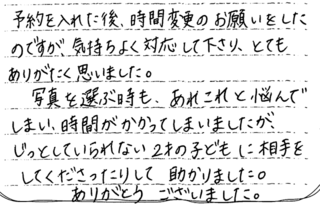 予約を入れた後、時間変更のお願いをした
のですが、気持ちよく対応して下さり、とても
ありがたく思いました。
写真を選ぶ時も、あれこれと悩んで
しまい、時間がかかってしまいましたが、
じっとしていられない2才の子どもに相手を
してくださったりして助かりました。
ありがとうございました。